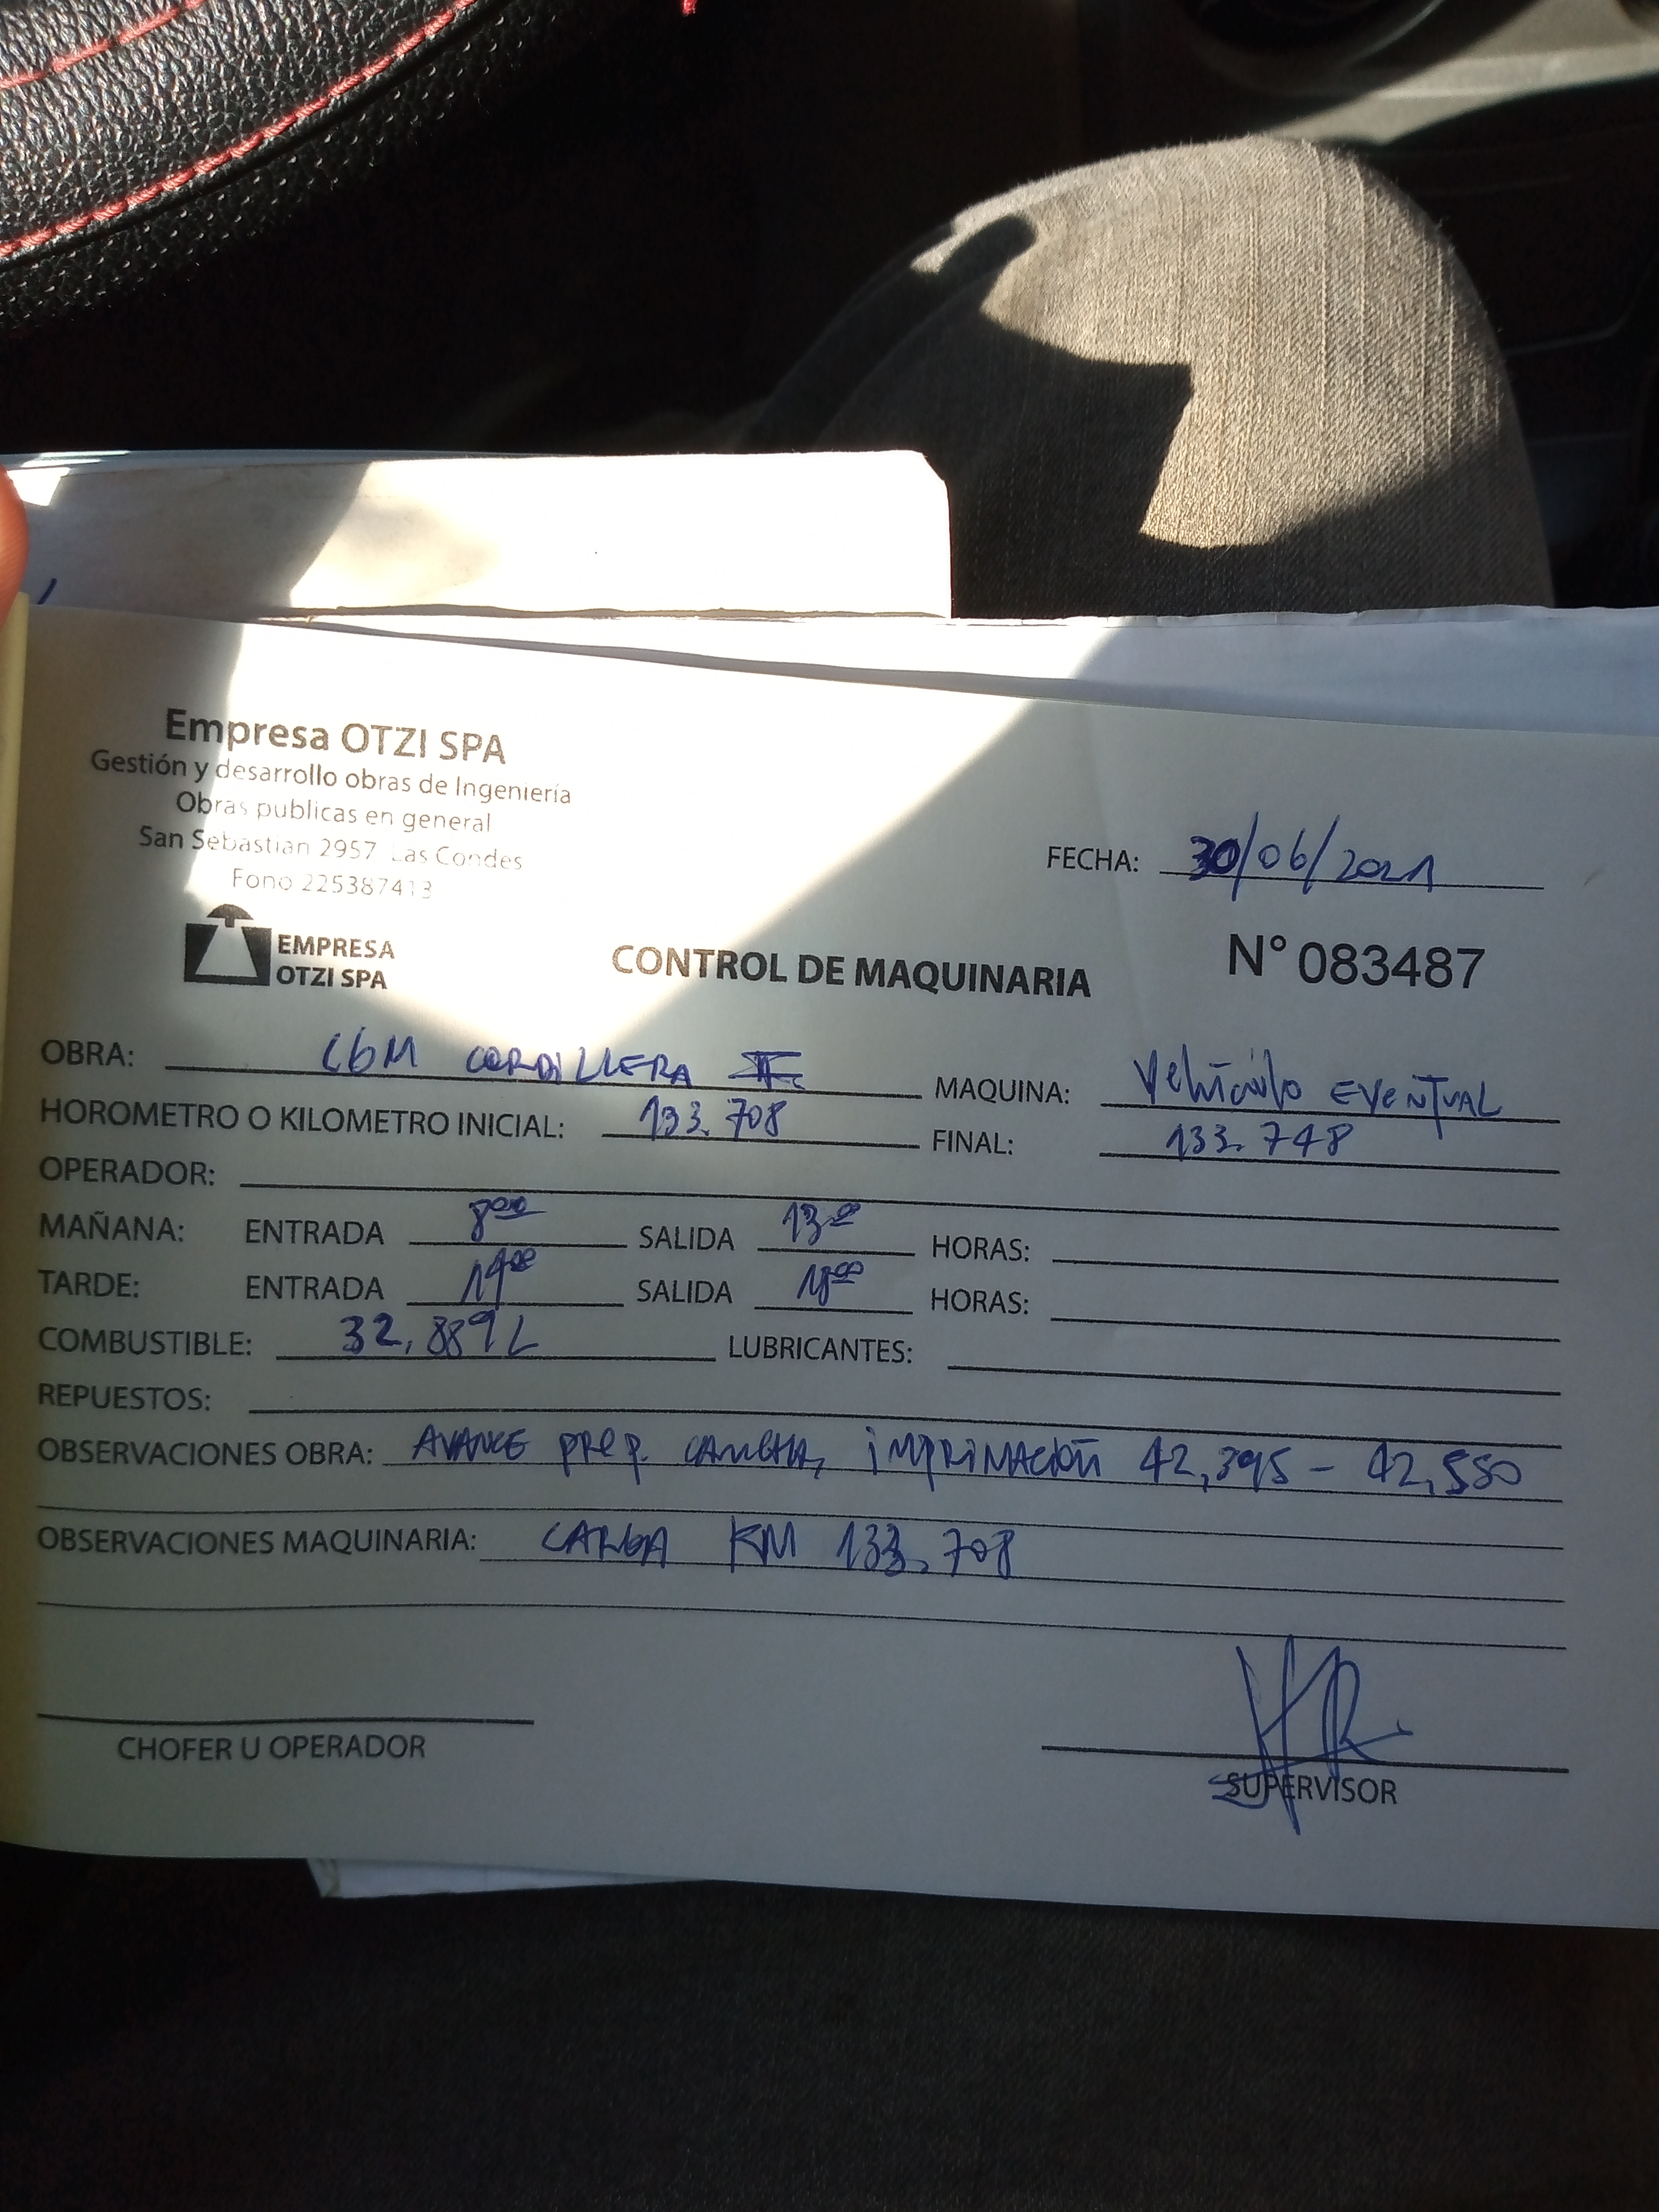 Empresa OTZI SPA
Gestión y desarrollo obras de Ingeniería
Obras publicas en general
San Sebastian 2957 Las Condes
Fono 225387413
FECHA: 30/06/2021
EMPRESA
OTZI SPA
CONTROL DE MAQUINARIA
N° 083487
OBRA: CORDILLERA II MAQUINA: Vehículo EVENTUAL
HOROMETRO O KILOMETRO INICIAL: 133.708 FINAL: 133.748
OPERADOR:
MAÑANA: ENTRADA 8:00 SALIDA 13:00 HORAS:
TARDE: ENTRADA 14:00 SALIDA 18:00 HORAS:
COMBUSTIBLE: 32,889 L LUBRICANTES:
REPUESTOS:
OBSERVACIONES OBRA: AVANCE PREP. CANCHA, IMPRIMACIÓN 42,395 - 42,550
OBSERVACIONES MAQUINARIA: CARGA KM 133.708
CHOFER U OPERADOR
SUPERVISOR